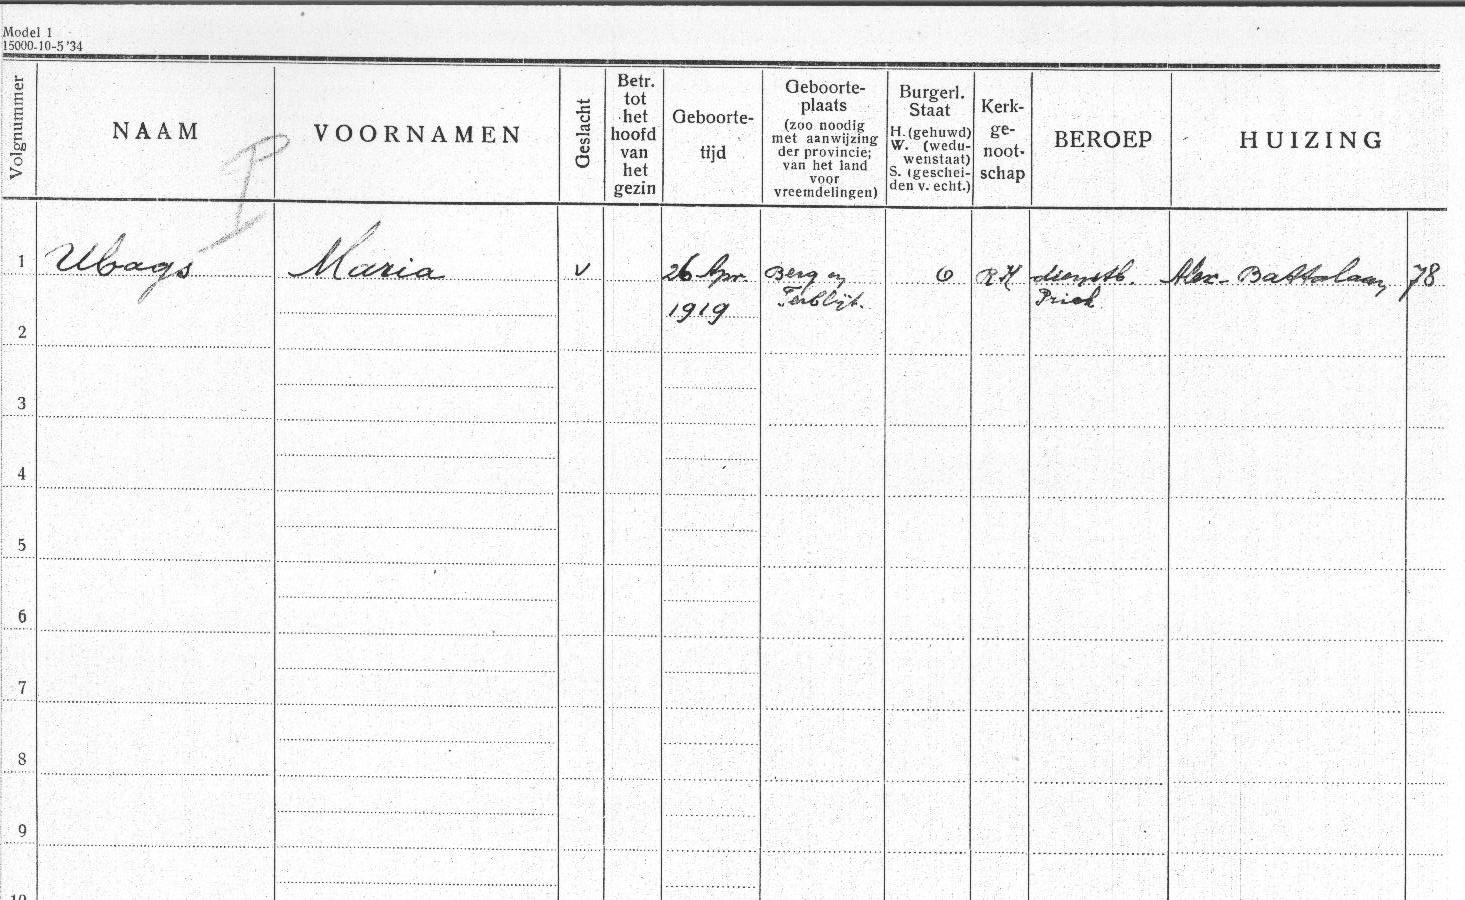 Model 1
15000-10-5 '34
Volgnummer
NAAM
VOORNAMEN
Geslacht
Betr.
tot
het
hoofd
van
het
gezin
Geboorte-
tijd
Geboorte-
plaats
(zoo noodig
met aanwijzing
der provincie;
van het land
voor
vreemdelingen)
Burgerl.
Staat
H. (gehuwd)
W. (wedu-
wenstaat)
S. (geschei-
den v. echt.)
Kerk-
ge-
noot-
schap
BEROEP
HUIZING
P
1 Ubags Maria v 26 Apr. Berg en O RK dienstb. Alex. Battalaan 78
1919 Terblijt. Prick
2
3
4
5
6
7
8
9
10